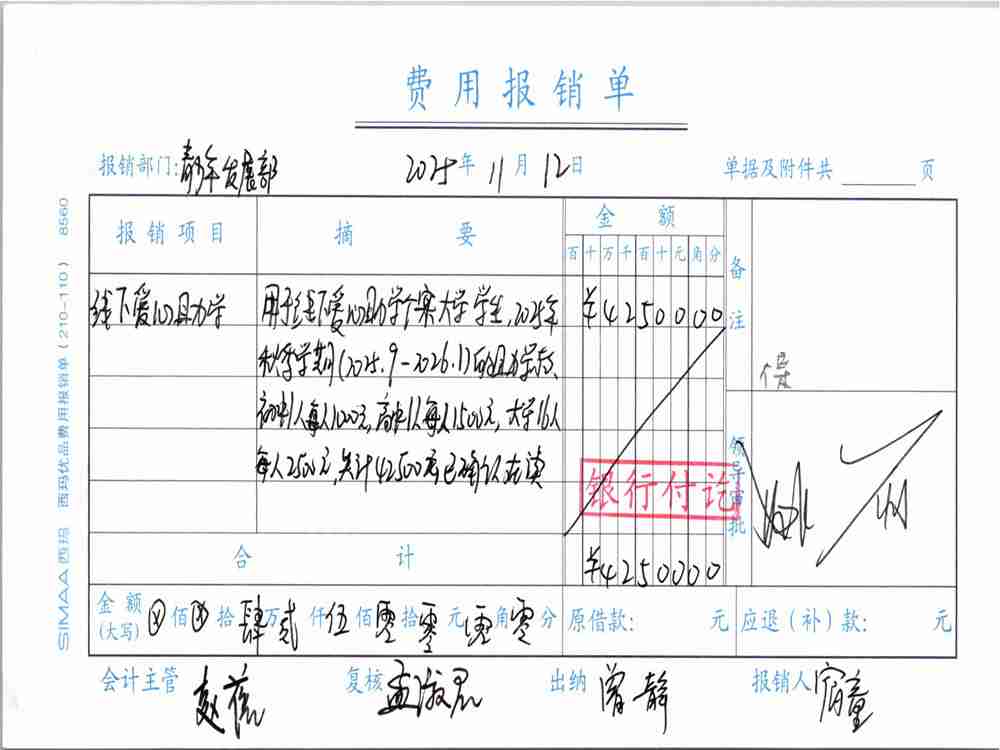 费用报销单
报销部门:青年发展部 2025年11月12日 单据及附件共 页
报销项目 摘要 金额 备注
百十万千百十元角分
线下爱心助学 用于线下爱心助学个案大学学生,2025年 ¥4250000
秋季学期(2025.9-2026.1)的助学款,
初中1人每人1000元,高中1人每人1500元,大学16人
每人2500元,共计42500元已确认在读
领导审批
银行付讫
合计 ¥4250000
金额(大写) ⊗佰⊗拾肆万贰仟伍佰零拾零元零角零分 原借款: 元 应退(补)款: 元
会计主管 赵蓓 复核 孟淑君 出纳 曾静 报销人 宿童
SIMAA西玛 西玛优品费用报销单(210-110) 8560